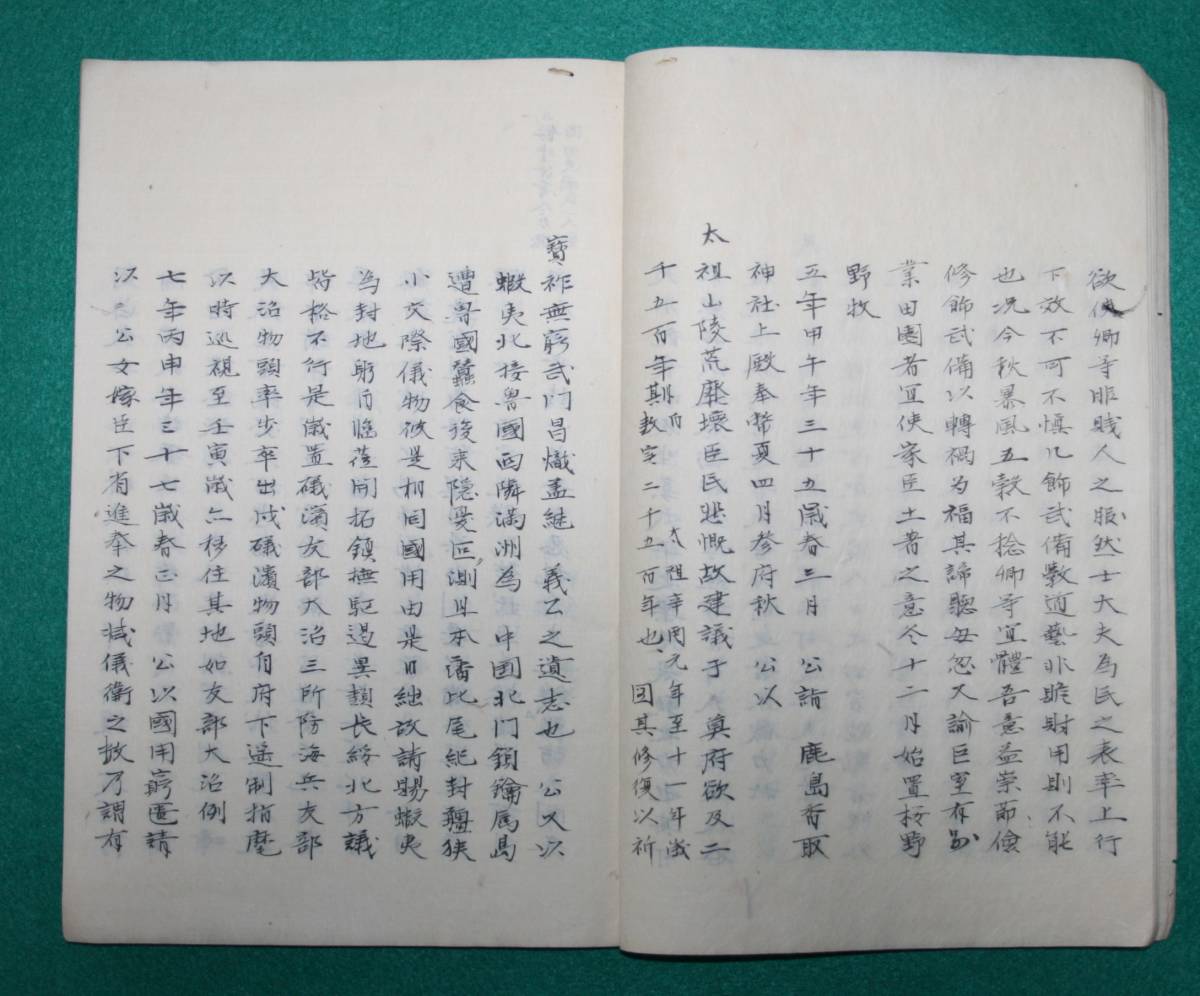 欲使卿等非賤人之服然士大夫為民之表率上行
下效不可不慎凡飾武備数道藝非贍財用則不能
也況今秋暴風五穀不稔卿等宜體吾意益崇節儉
修飾武備以轉禍為福其諦聽毋忽又諭巨室有別
業田園者宜使家臣土着之意冬十二月始置桜野
野牧
五年甲午年三十五歳春三月　公詣　鹿島香取
神社上殿奉幣夏四月参府秋　公以
太祖山陵荒廢壞臣民悲慨故建議于　幕府欲及二
千五百年期而　太祖辛酉元年至十一年歳数実二千五百年也、因其修復以祈
寳祚無窮武門昌熾盖継　義公之遺志也　公又以
蝦夷北接魯國西隣満洲為　中国北門鎖鑰属島
遭魯國蠶食後来隠憂叵測且本藩比尾紀封疆狭
小交際儀物彼是相同國用由是日絀故請賜蝦夷
為封地躬自臨莅開拓鎮撫駆逷異類長紓北方議
皆格不行是歳置磯濱友部大沼三所防海兵友部
大沼物頭率歩卒出戍磯濱物頭自府下遥制指麾
以時巡視至壬寅歳亦移住其地如友部大沼例
七年丙申年三十七歳春正月　公以國用窮匱請
以　公女嫁臣下有進奉之物減儀衛之数乃謂有